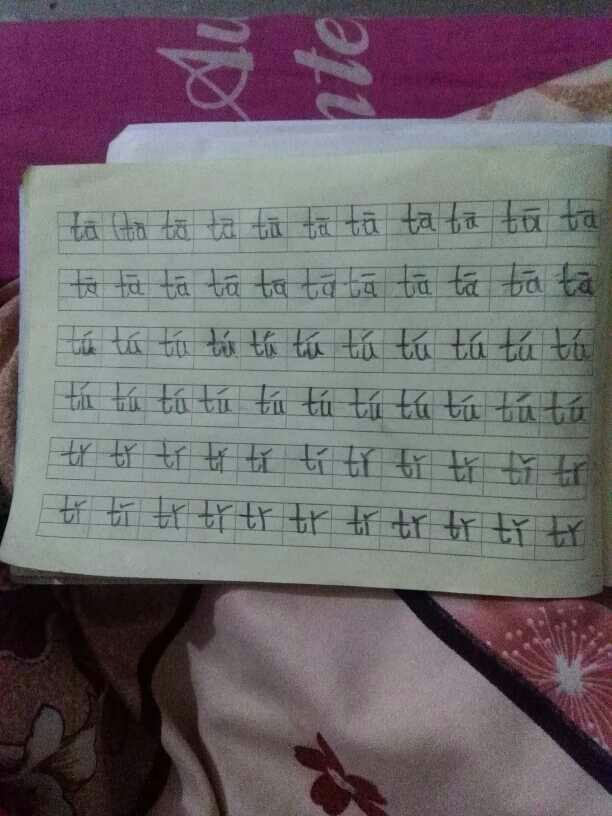 Au
nte
tā tā tā tā tā tā tā tā tā tā tā
tā tā tā tā tā tā tā tā tā tā tā
tú tú tú tú tú tú tú tú tú tú tú
tú tú tú tú tú tú tú tú tú tú tú
tǐ tǐ tǐ tǐ tǐ tǐ tǐ tǐ tǐ tǐ tǐ
tǐ tǐ tǐ tǐ tǐ tǐ tǐ tǐ tǐ tǐ tǐ